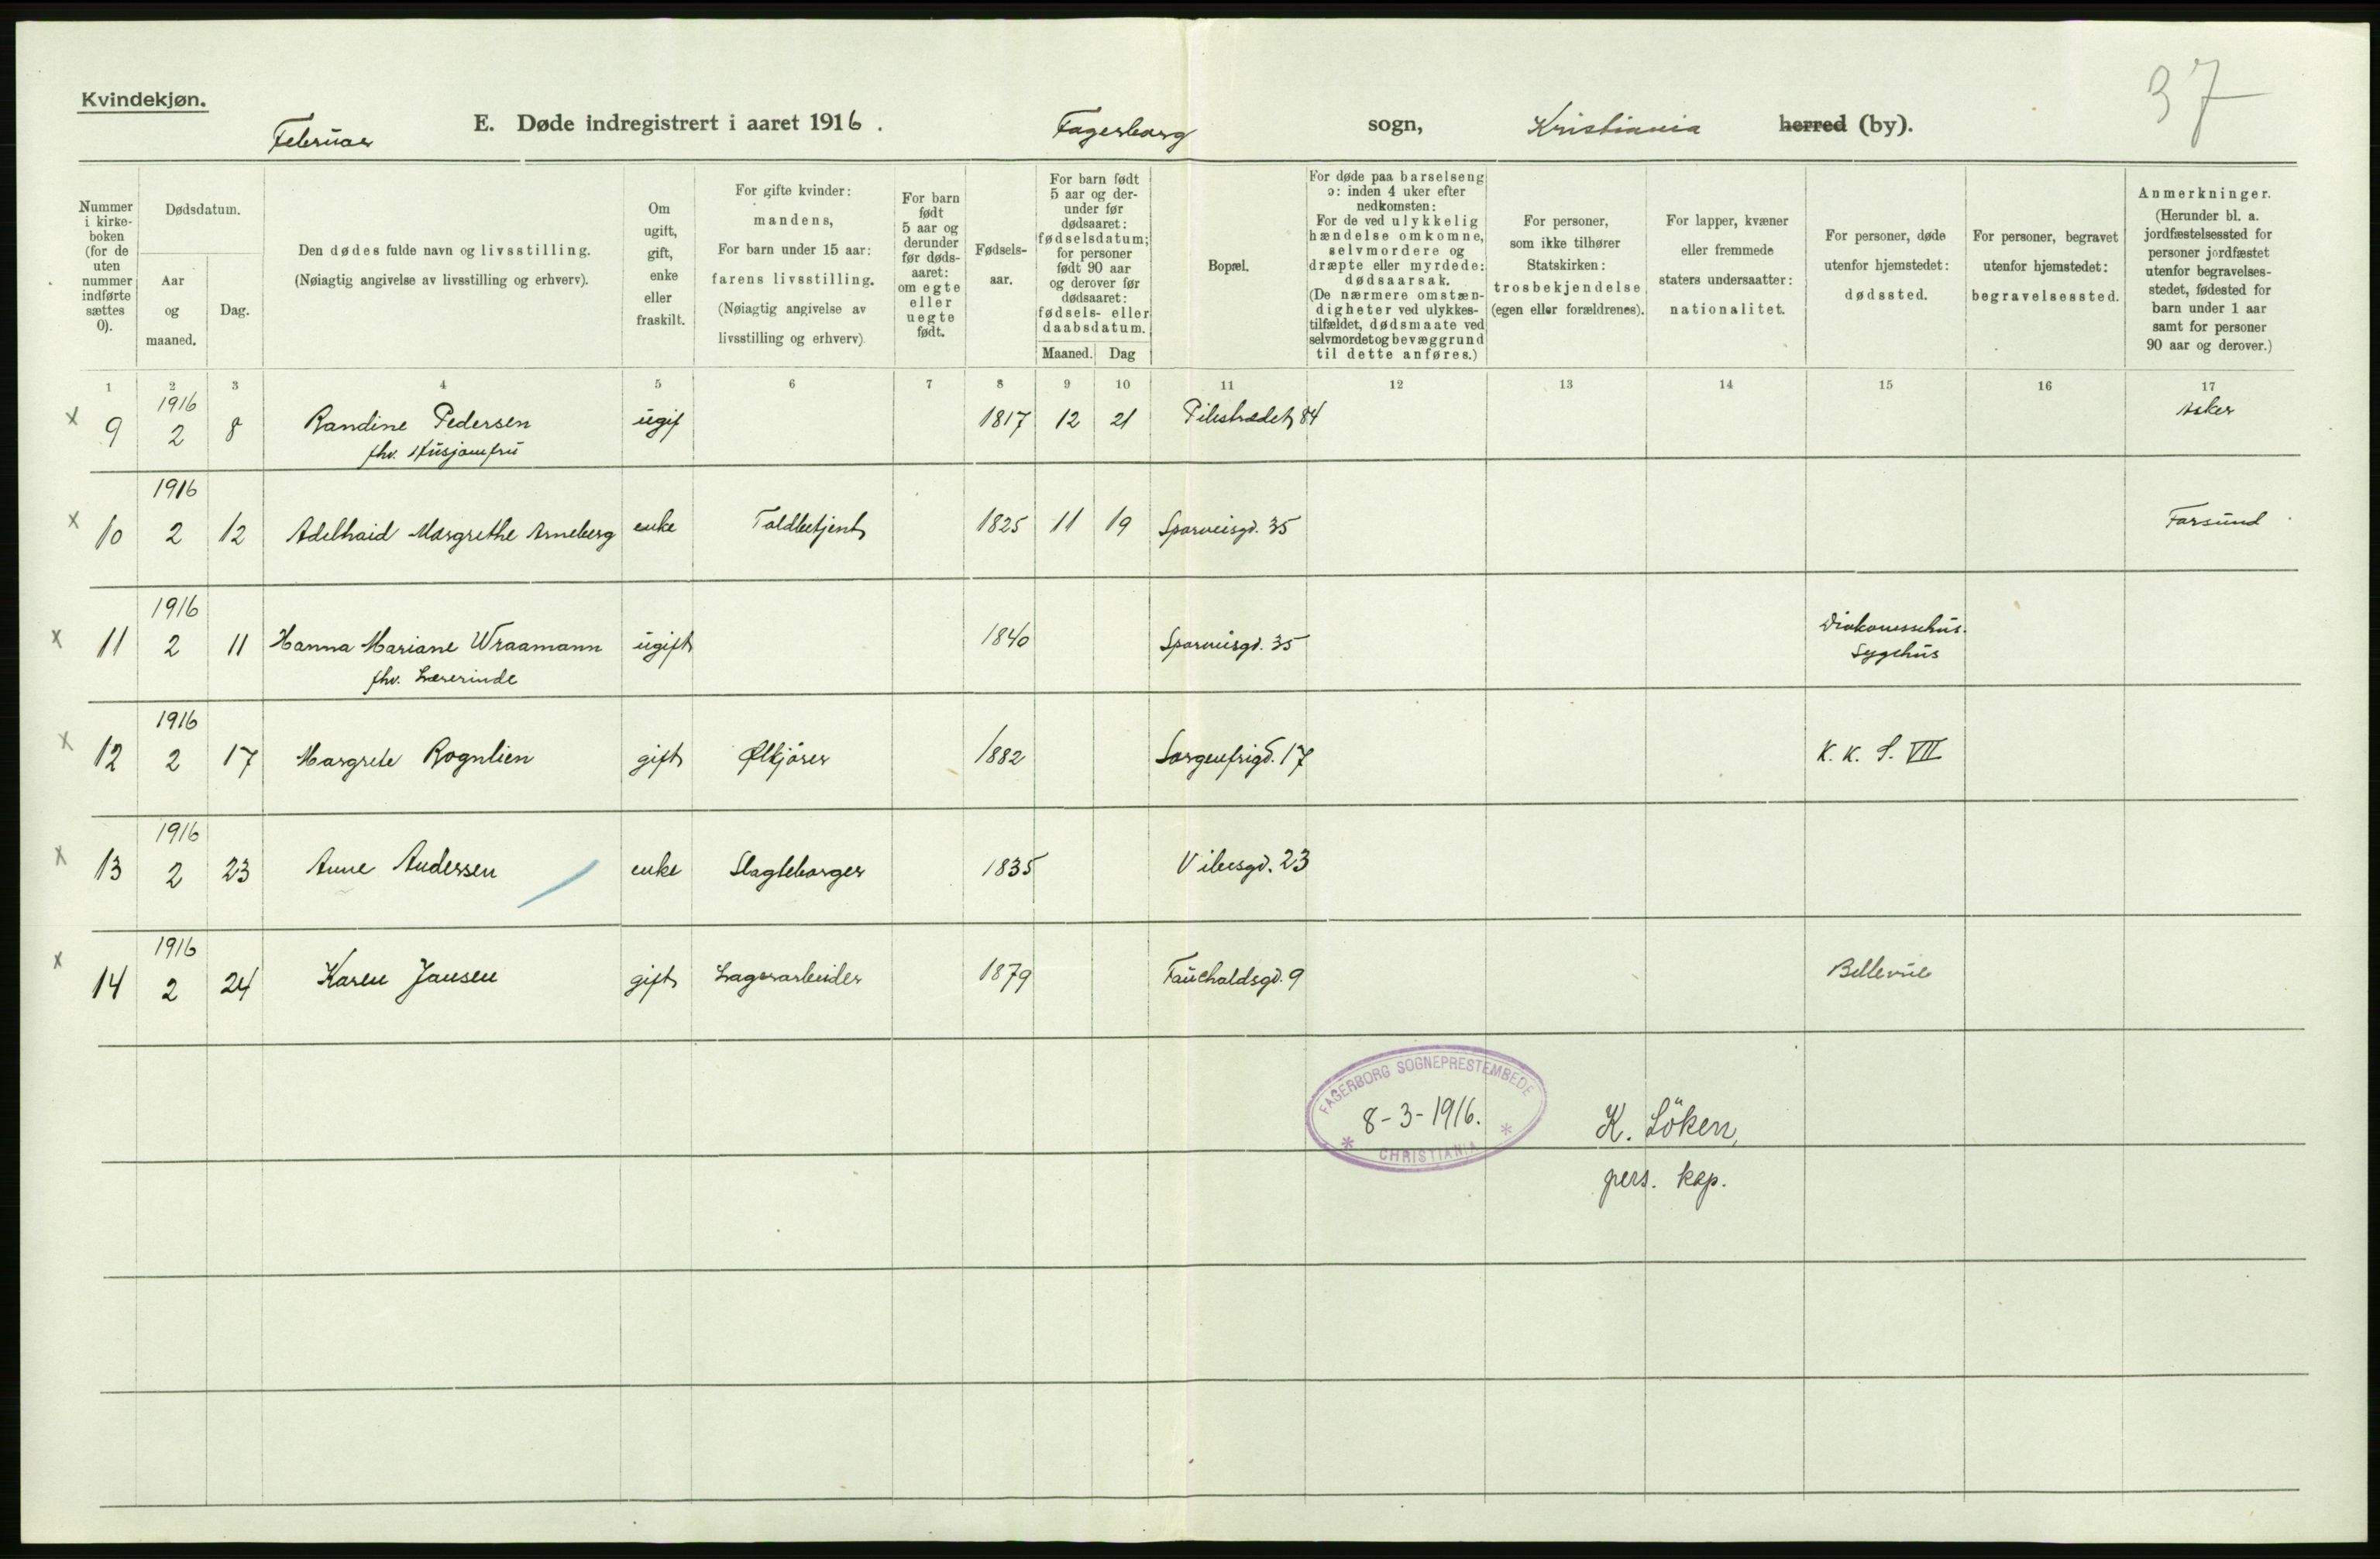 Kvindekjøn.
37
Februar
E. Døde indregistrert i aaret 1916.
Fagerborg sogn, Kristiania herred (by).
Nummer i kirkeboken (for de uten nummer indførte sættes 0).
Dødsdatum.
Aar og maaned.
Dag.
Den dødes fulde navn og livsstilling.
(Nøiagtig angivelse av livsstilling og erhverv).
Om ugift, gift, enke eller fraskilt.
For gifte kvinder: mandens,
For barn under 15 aar: farens livsstilling.
(Nøiagtig angivelse av livsstilling og erhverv)
For barn født 5 aar og derunder før dødsaaret: om egte eller uegte født.
Fødselsaar.
For barn født 5 aar og derunder før dødsaaret: fødselsdatum; for personer født 90 aar og derover før dødsaaret: fødsels- eller daabsdatum.
Maaned. Dag
Bopæl.
For døde paa barselseng ɔ: inden 4 uker efter nedkomsten:
For de ved ulykkelig hændelse omkomne, selvmordere og dræpte eller myrdede: dødsaarsak.
(De nærmere omstændigheter ved ulykkestilfældet, dødsmaate ved selvmordet og bevæggrund til dette anføres.)
For personer, som ikke tilhører Statskirken: trosbekjendelse (egen eller forældrenes).
For lapper, kvæner eller fremmede staters undersaatter: nationalitet.
For personer, døde utenfor hjemstedet: dødssted.
For personer, begravet utenfor hjemstedet: begravelsessted.
Anmerkninger.
(Herunder bl. a. jordfæstelsessted for personer jordfæstet utenfor begravelsesstedet, fødested for barn under 1 aar samt for personer 90 aar og derover.)
1 2 3 4 5 6 7 8 9 10 11 12 13 14 15 16 17
x 9 1916 2 8 Randine Pedersen ugif 1817 12 21 Pilestrædet 84 Asker
fhv. Husjomfru
x 10 1916 2 12 Adelhaid Margrethe Arneberg enke Toldbetjent 1825 11 19 Sporveisgd. 35 Farsund
x 11 1916 2 11 Hanna Mariane Wraamann ugift 1840 Sporveisgd. 35 Diakonissehus. Sygehus
fhv. Lærerinde
x 12 1916 2 17 Margrete Rognlien gift Ølkjører 1882 Sorgenfrigd. 17 K. K. S. VII
x 13 1916 2 23 Anne Andersen enke Slagteborger 1835 Vibesgd. 23
x 14 1916 2 24 Karen Jansen gift Lagerarbeider 1879 Fauchaldsgd. 9 Bellevue
FAGERBORG SOGNEPRESTEMBEDE
8-3-1916.
* CHRISTIANIA *
K. Löken,
pers. kap.